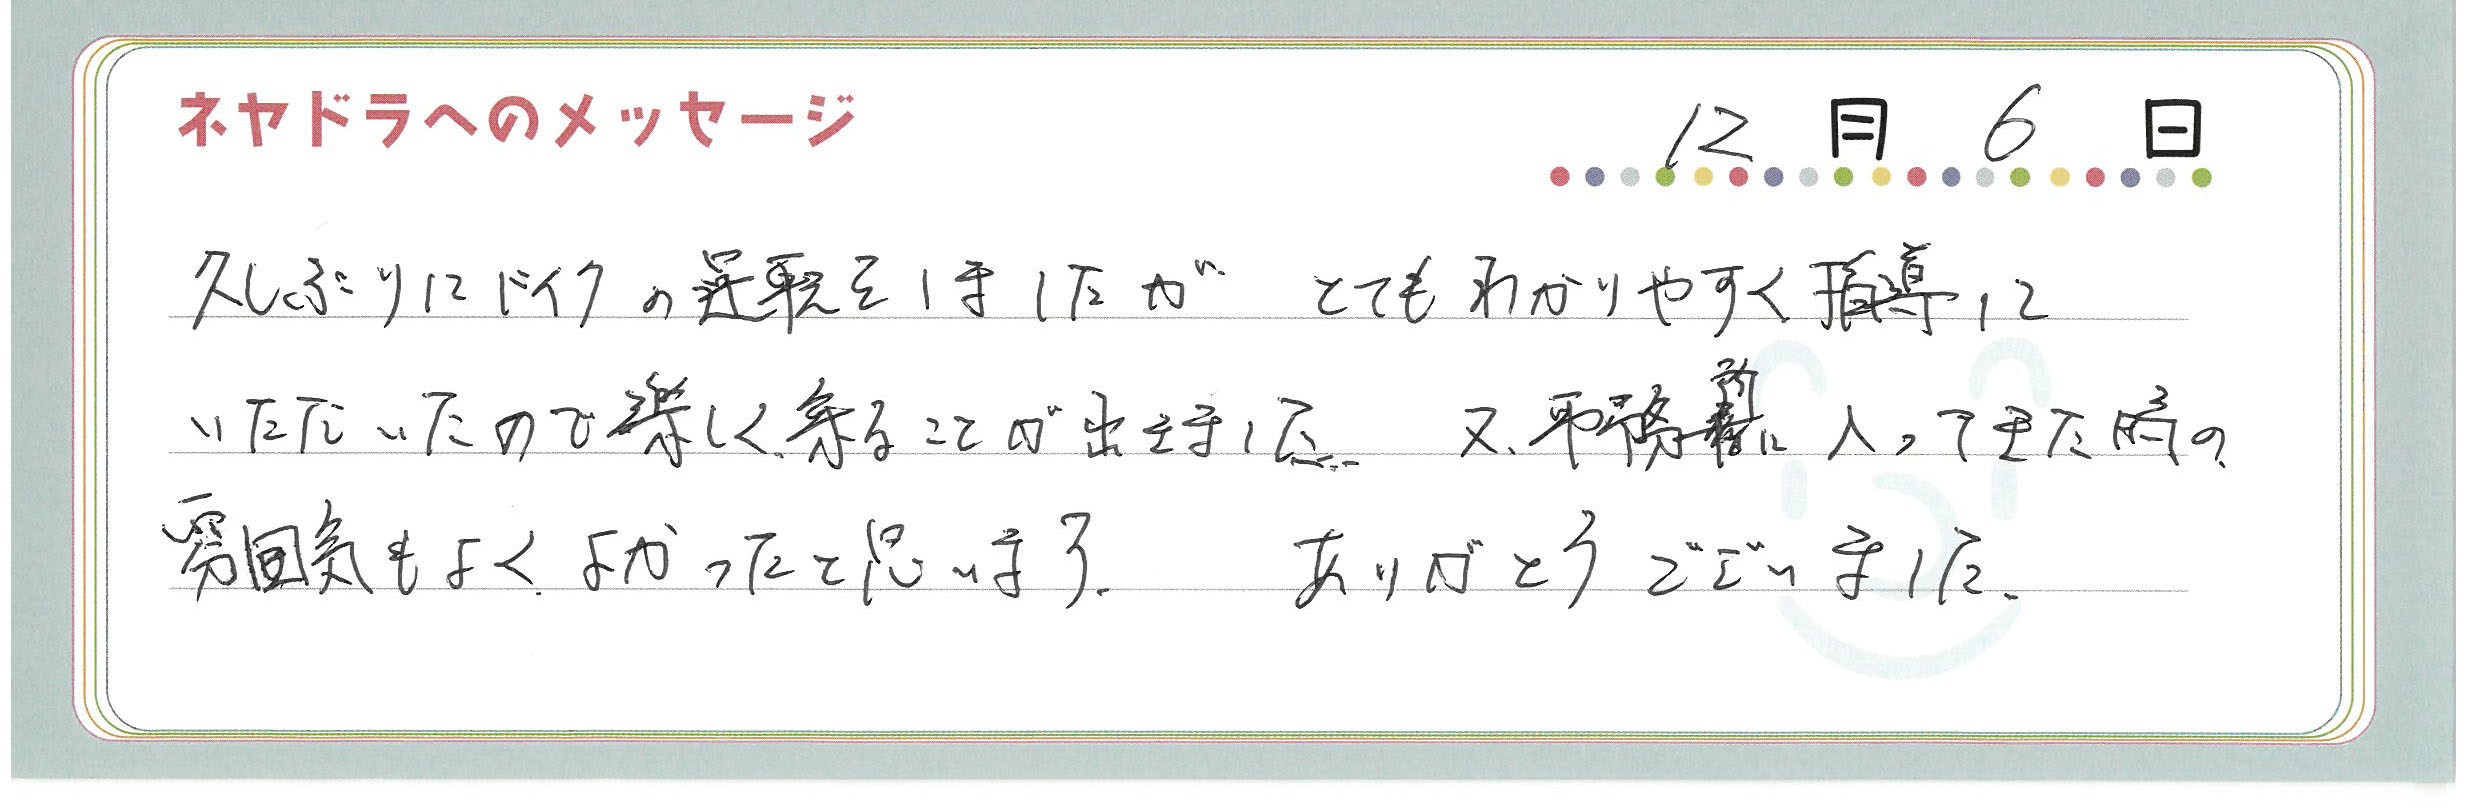 ネヤドラへのメッセージ
12月6日
久しぶりにバイクの運転をしましたが とてもわかりやすく指導して
いただいたので楽しく乗ることが出来ました 又、事務所に入ってきた時の
雰囲気もよく、よかったと思います。 ありがとうございました。